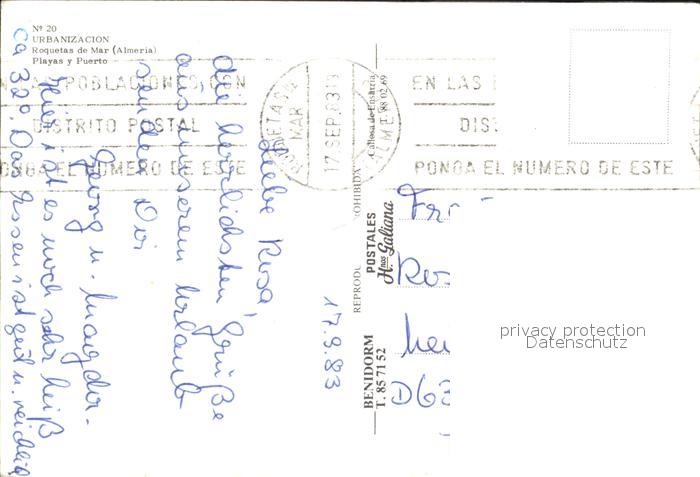 Nº 20
URBANIZACION
Roquetas de Mar (Almeria)
Playas y Puerto
POBLACIONES CON
DISTRITO POSTAL
PONGA EL NUMERO DE ESTE
ROQUETAS
MAR
17 SEP. 83
ALME
EN LAS
DIS
PONGA EL NUMERO DE ESTE
17.9.83
Liebe Rosa,
die herrlichsten Grüße
aus unserem Urlaub
senden Dir
Georg u. Magda.
Hier ist es noch sehr heiß
ca 32°. Das Essen ist gut u. reichlich
Callosa de Ensarria
88 02 69
REPRODU OHIBIDA
POSTALES
Hnos Galiana
BENIDORM
T. 85 71 52
Fr
Ro
D63
privacy protection
Datenschutz